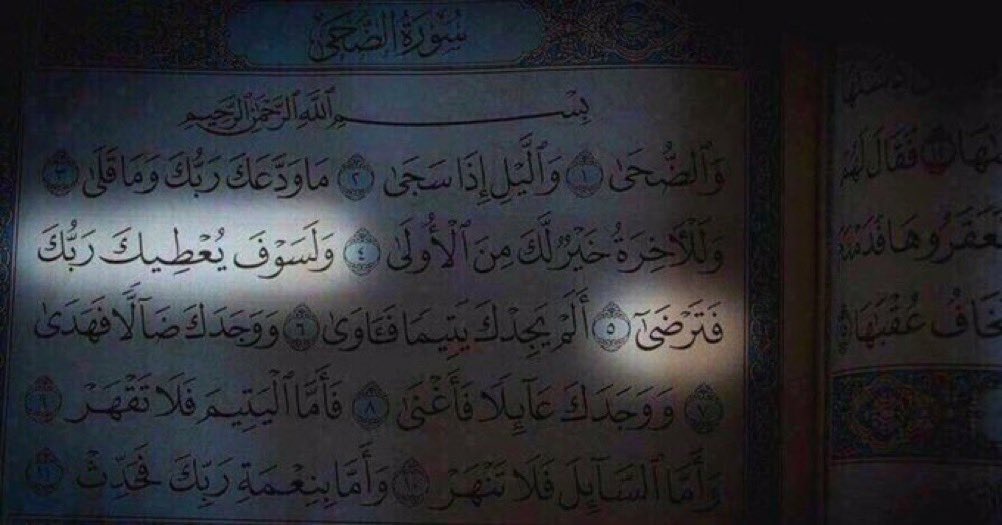 سُورَةُ الضُّحَىٰ
بِسْمِ ٱللَّهِ ٱلرَّحْمَٰنِ ٱلرَّحِيمِ
وَٱلضُّحَىٰ ١ وَٱلَّيْلِ إِذَا سَجَىٰ ٢ مَا وَدَّعَكَ رَبُّكَ وَمَا قَلَىٰ ٣
وَلَلْأٓخِرَةُ خَيْرٌ لَّكَ مِنَ ٱلْأُولَىٰ ٤ وَلَسَوْفَ يُعْطِيكَ رَبُّكَ
فَتَرْضَىٰٓ ٥ أَلَمْ يَجِدْكَ يَتِيمًا فَـَٔاوَىٰ ٦ وَوَجَدَكَ ضَآلًّا فَهَدَىٰ
٧ وَوَجَدَكَ عَآئِلًا فَأَغْنَىٰ ٨ فَأَمَّا ٱلْيَتِيمَ فَلَا تَقْهَرْ ٩
وَأَمَّا ٱلسَّآئِلَ فَلَا تَنْهَرْ ١٠ وَأَمَّا بِنِعْمَةِ رَبِّكَ فَحَدِّثْ ١١
فَقَالَ لَهُمْ
فَعَقَرُوهَا فَدَمْدَمَ
يَخَافُ عُقْبَٰهَا